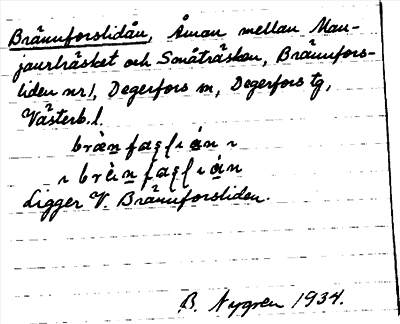 Brännforslidån, Åman mellan Man-
jaurträsket och Småträsken, Brännfors-
liden nr 1, Degerfors sn, Degerfors tg,
Västerb. l.
Ligger V. Brännforsliden.
B. Nygren 1934.